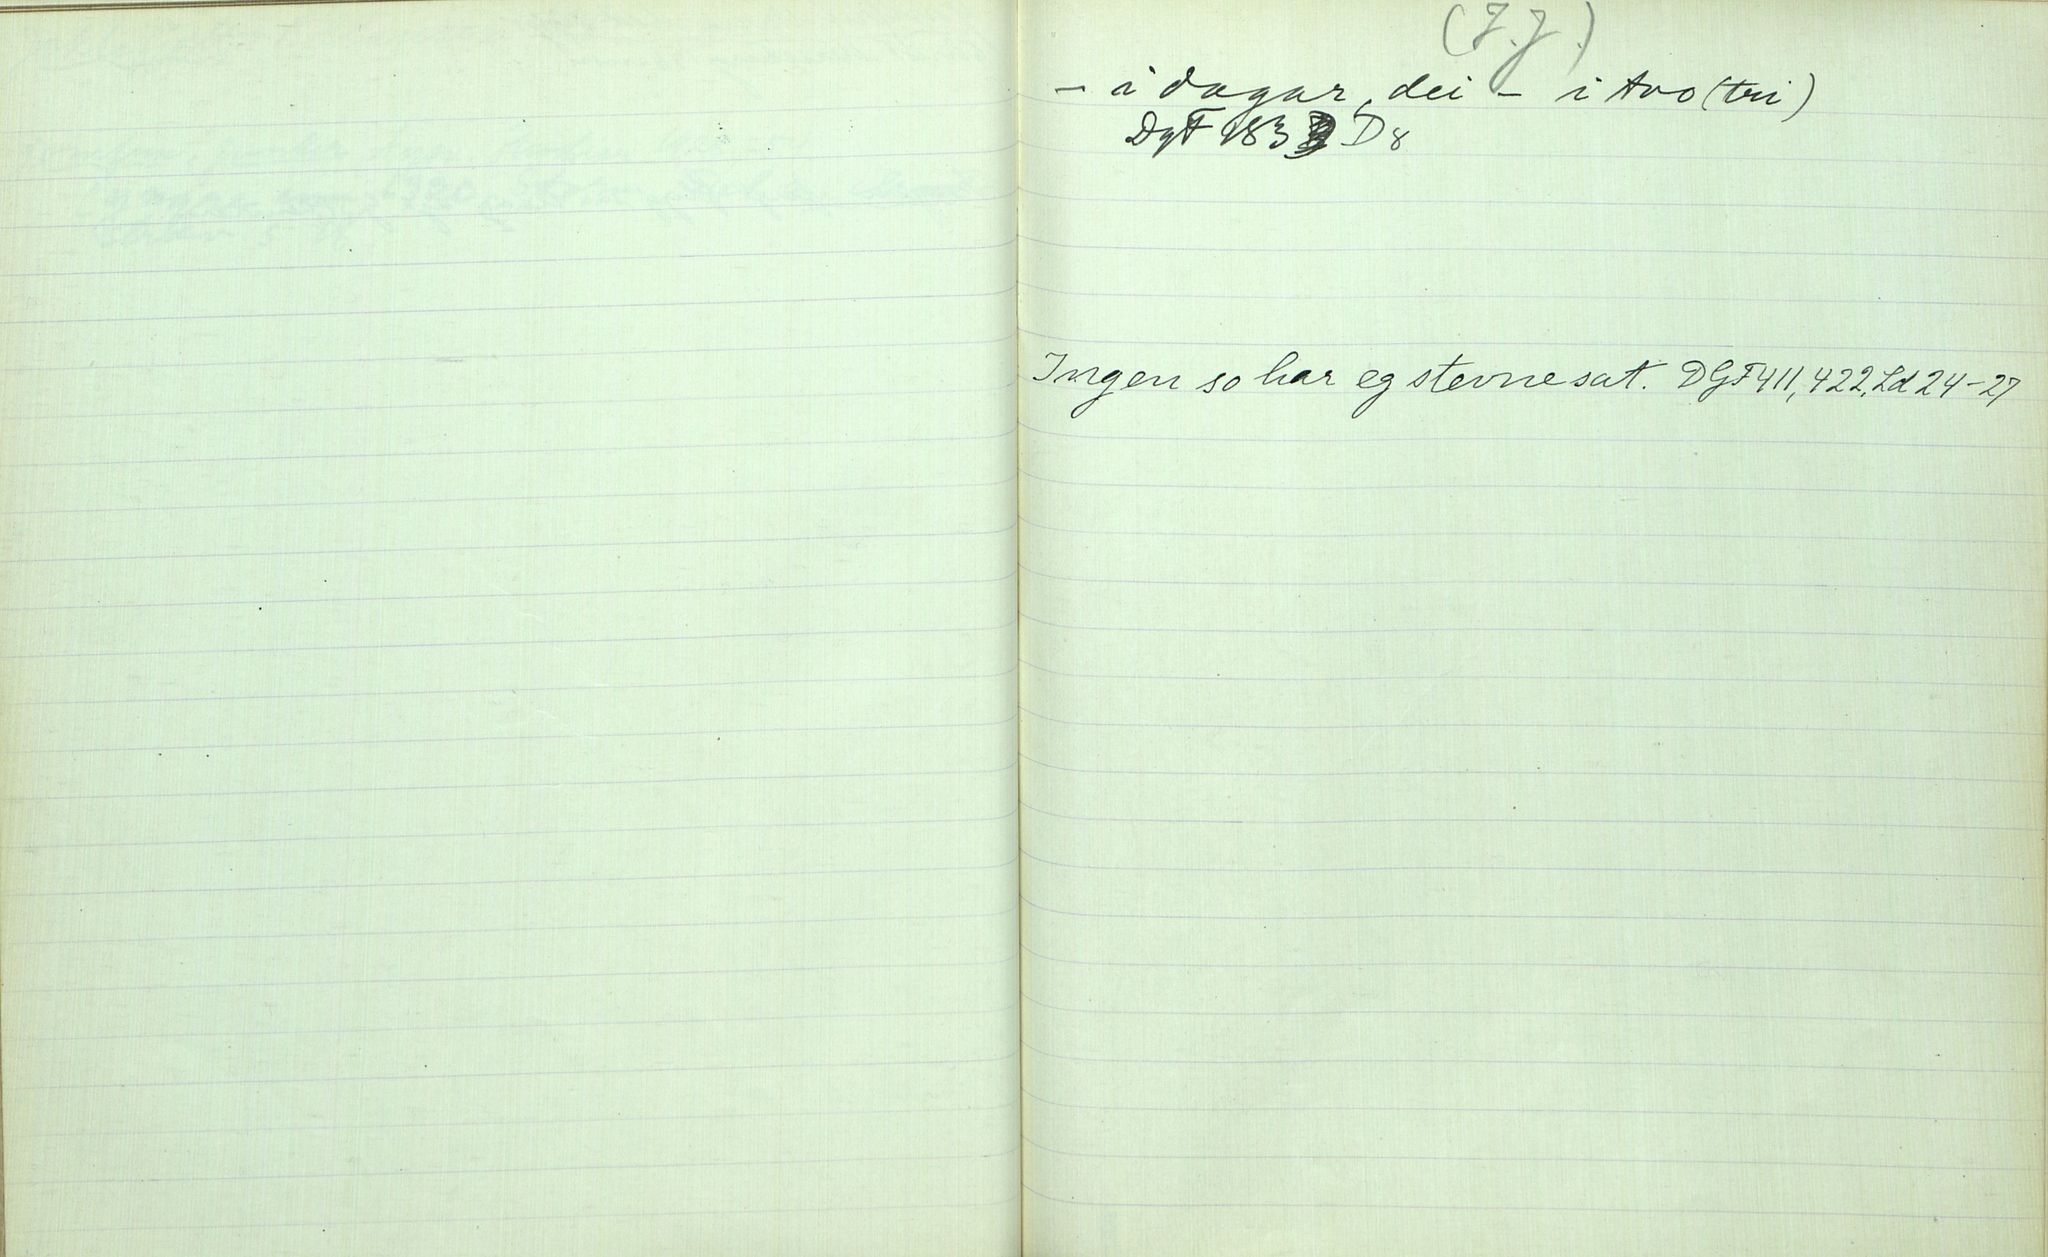 (J.J.)
- i dagar, dei - i tvo (tri)
DgF 183 D8
Ingen so har eg stevne sat. DGF 411, 422, Ld 24-27